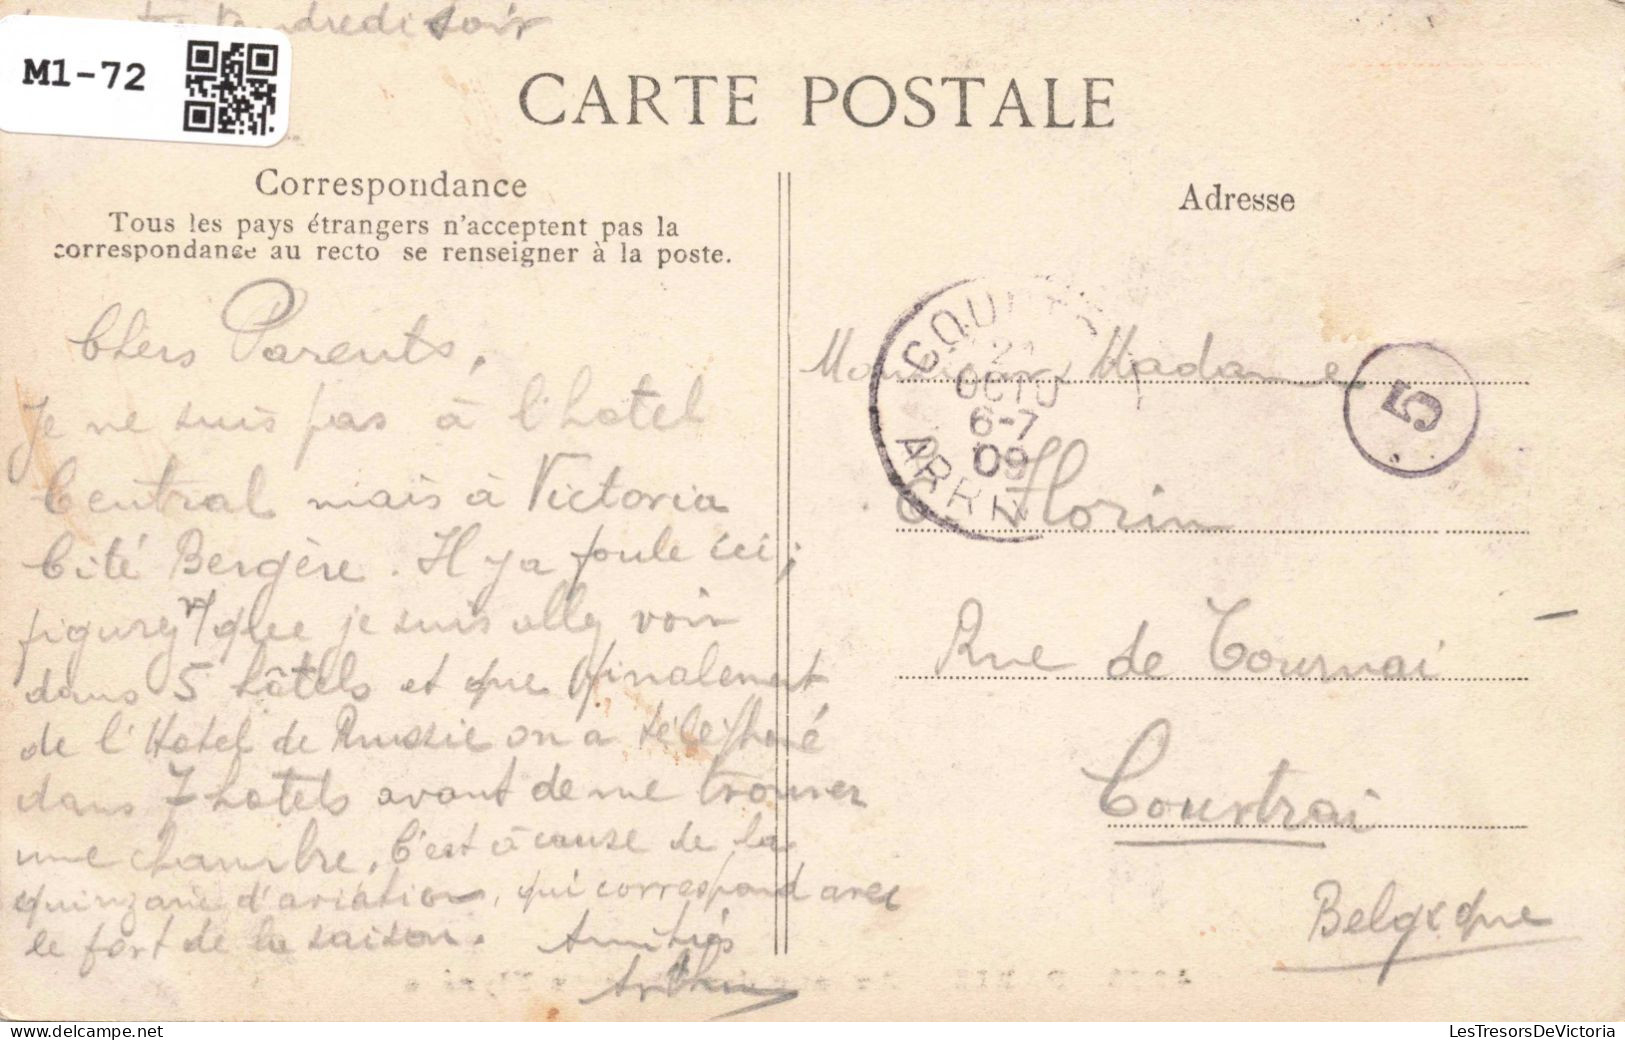 Vendredi soir
M1-72
CARTE POSTALE
Correspondance
Tous les pays étrangers n'acceptent pas la
correspondance au recto se renseigner à la poste.
Chers Parents,
Je ne suis pas à l'hotel
Central mais à Victoria
Cité Bergère. Il y a foule ici;
figurez que je suis allé voir
dans 5 hôtels et que finalement
de l'Hotel de Russie on a téléphoné
dans 7 hotels avant de me trouver
une chambre. C'est à cause de la
quinzaine d'aviation, qui correspond avec
le fort de la saison. Amitiés
Arthur
Adresse
COURT
OCTO
6-7
09
ARR
5
Monsieur & Madame
C. Florin
Rue de Tournai
Courtrai
Belgique
LesTresorsDeVictoria